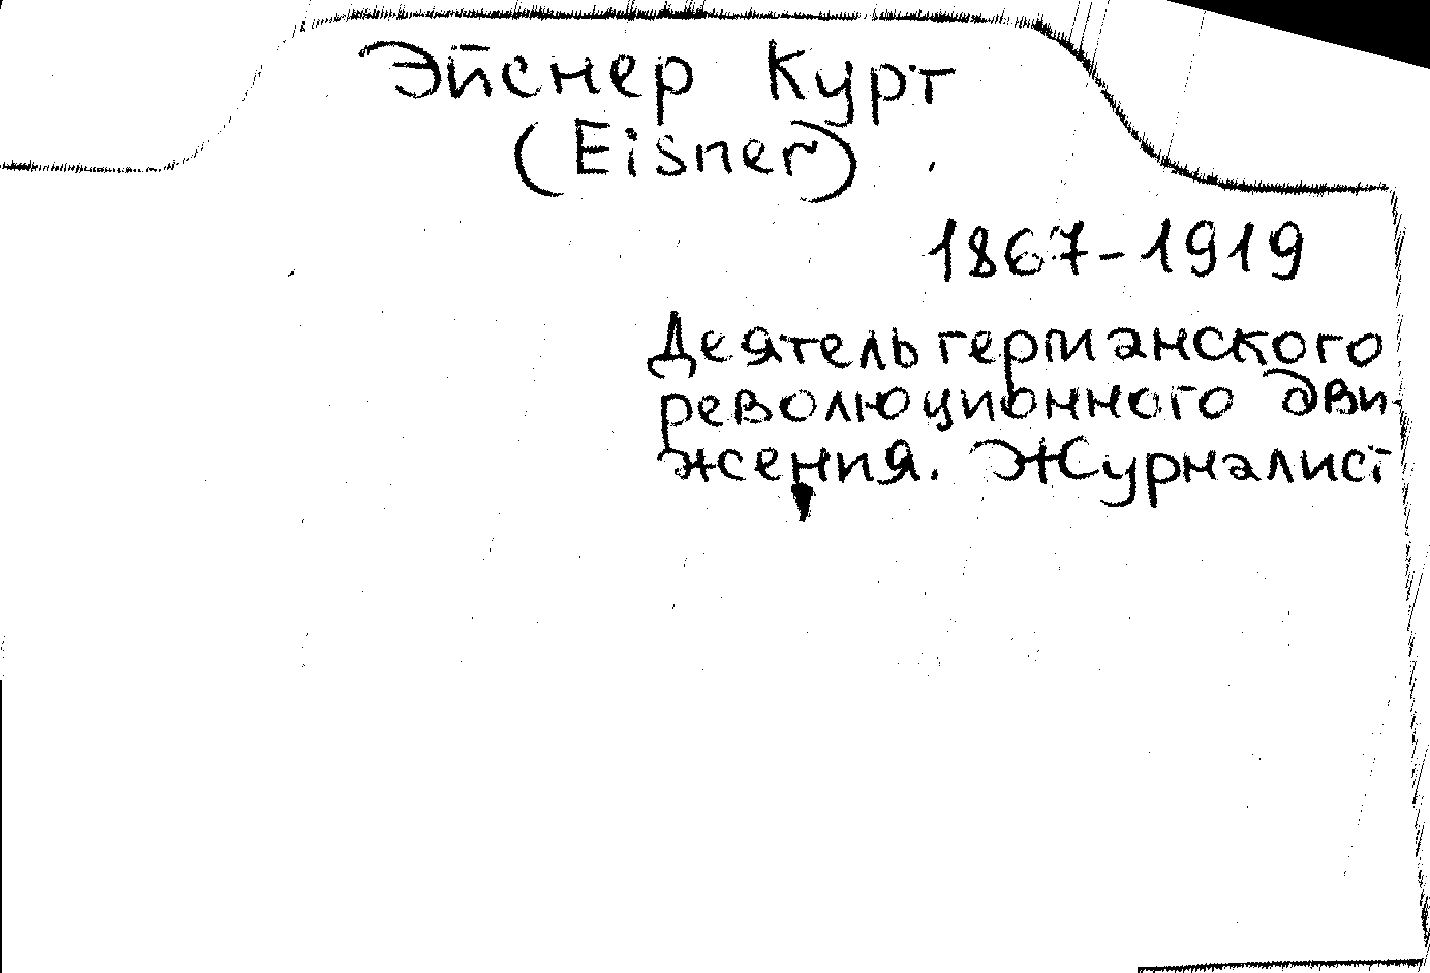 Эйснер Курт
(Eisner)
1867-1919
Деятель германского
революционного дви-
жения. Журналист